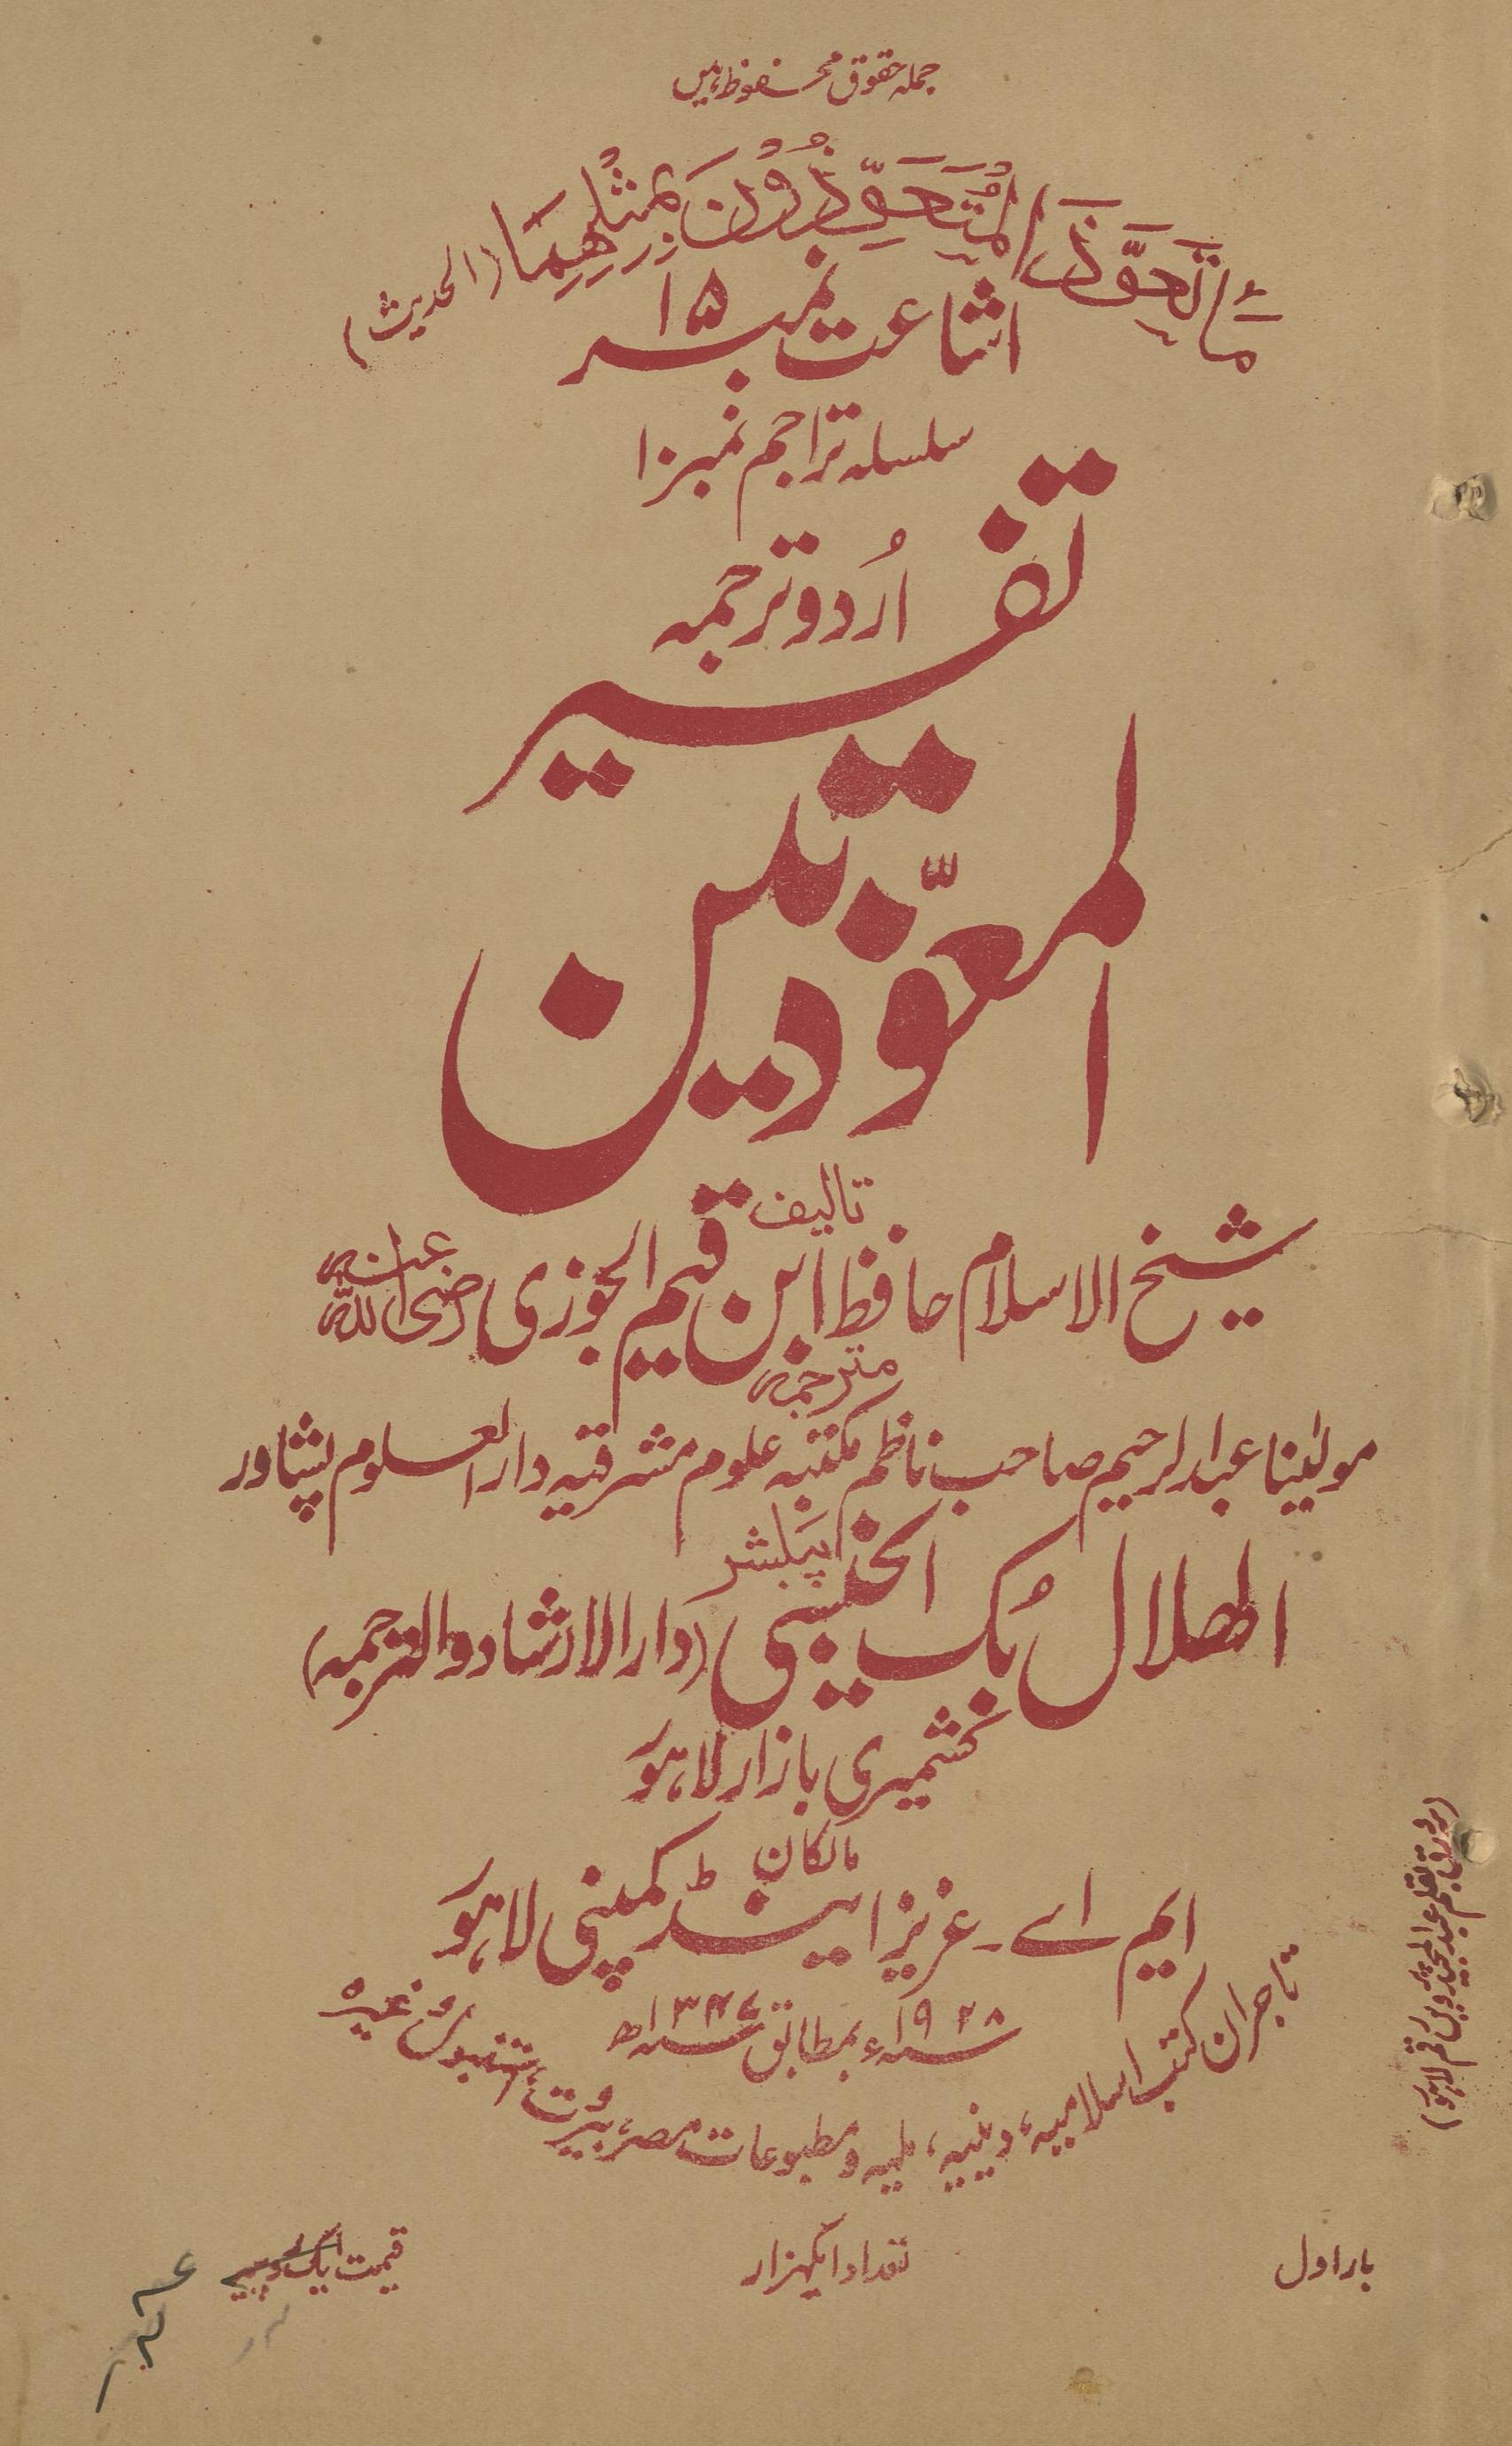 جملہ حقوق محفوظ ہیں
مَا تَعَوَّذَ الْمُتَعَوِّذُوْنَ بِمِثْلِهِمَا (الحدیث)
اشاعت نمبر ۱۵
سلسلہ تراجم نمبر ۱۰
اُردو ترجمہ
تفسیر
المعوّذتین
تالیف
شیخ الاسلام حافظ ابن قیم الجوزی رضی اللہ عنہ
مترجمہ
مولٰینا عبدالرحیم صاحب ناظم مکتبہ علوم مشرقیہ دارالعلوم پشاور
پبلشر
الھلال بُک ایجنسی (دارالارشاد والترجمہ)
کشمیری بازار لاہور
مالکان
ایم اے۔ عزیز اینڈ کمپنی لاہور
۱۹۲۸ء بمطابق ۱۳۴۷ھ
تاجران کتب اسلامیہ، دینیہ، ملیہ و مطبوعات مصر، بیروت، استنبول وغیرہ
بار اول
تعداد ایکہزار
قیمت ایک روپیہ